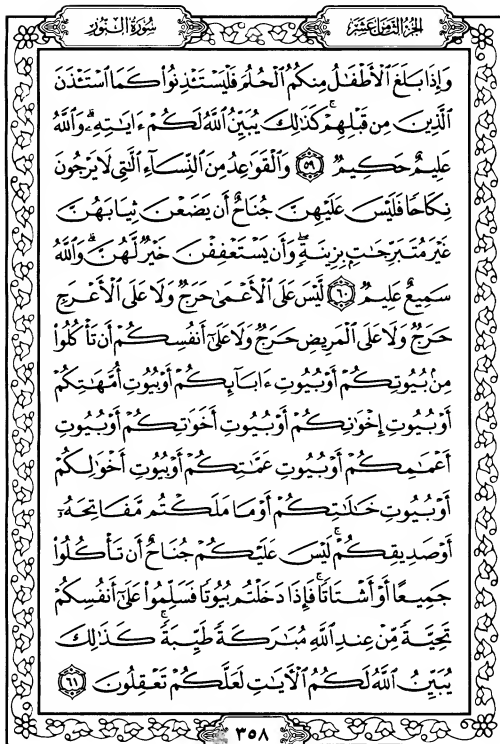 سُورَةُ النُّورِ
الجُزْءُ الثَّامِنَ عَشَرَ
وَإِذَا بَلَغَ ٱلْأَطْفَٰلُ مِنكُمُ ٱلْحُلُمَ فَلْيَسْتَـْٔذِنُوا۟ كَمَا ٱسْتَـْٔذَنَ
ٱلَّذِينَ مِن قَبْلِهِمْ ۚ كَذَٰلِكَ يُبَيِّنُ ٱللَّهُ لَكُمْ ءَايَٰتِهِۦ ۗ وَٱللَّهُ
عَلِيمٌ حَكِيمٌ ٥٩ وَٱلْقَوَٰعِدُ مِنَ ٱلنِّسَآءِ ٱلَّٰتِى لَا يَرْجُونَ
نِكَاحًا فَلَيْسَ عَلَيْهِنَّ جُنَاحٌ أَن يَضَعْنَ ثِيَابَهُنَّ
غَيْرَ مُتَبَرِّجَٰتٍۭ بِزِينَةٍ ۖ وَأَن يَسْتَعْفِفْنَ خَيْرٌ لَّهُنَّ ۗ وَٱللَّهُ
سَمِيعٌ عَلِيمٌ ٦٠ لَّيْسَ عَلَى ٱلْأَعْمَىٰ حَرَجٌ وَلَا عَلَى ٱلْأَعْرَجِ
حَرَجٌ وَلَا عَلَى ٱلْمَرِيضِ حَرَجٌ وَلَا عَلَىٰٓ أَنفُسِكُمْ أَن تَأْكُلُوا۟
مِنۢ بُيُوتِكُمْ أَوْ بُيُوتِ ءَابَآئِكُمْ أَوْ بُيُوتِ أُمَّهَٰتِكُمْ
أَوْ بُيُوتِ إِخْوَٰنِكُمْ أَوْ بُيُوتِ أَخَوَٰتِكُمْ أَوْ بُيُوتِ
أَعْمَٰمِكُمْ أَوْ بُيُوتِ عَمَّٰتِكُمْ أَوْ بُيُوتِ أَخْوَٰلِكُمْ
أَوْ بُيُوتِ خَٰلَٰتِكُمْ أَوْ مَا مَلَكْتُم مَّفَاتِحَهُۥٓ
أَوْ صَدِيقِكُمْ ۚ لَيْسَ عَلَيْكُمْ جُنَاحٌ أَن تَأْكُلُوا۟
جَمِيعًا أَوْ أَشْتَاتًا ۚ فَإِذَا دَخَلْتُم بُيُوتًا فَسَلِّمُوا۟ عَلَىٰٓ أَنفُسِكُمْ
تَحِيَّةً مِّنْ عِندِ ٱللَّهِ مُبَٰرَكَةً طَيِّبَةً ۚ كَذَٰلِكَ
يُبَيِّنُ ٱللَّهُ لَكُمُ ٱلْءَايَٰتِ لَعَلَّكُمْ تَعْقِلُونَ ٦١
٣٥٨